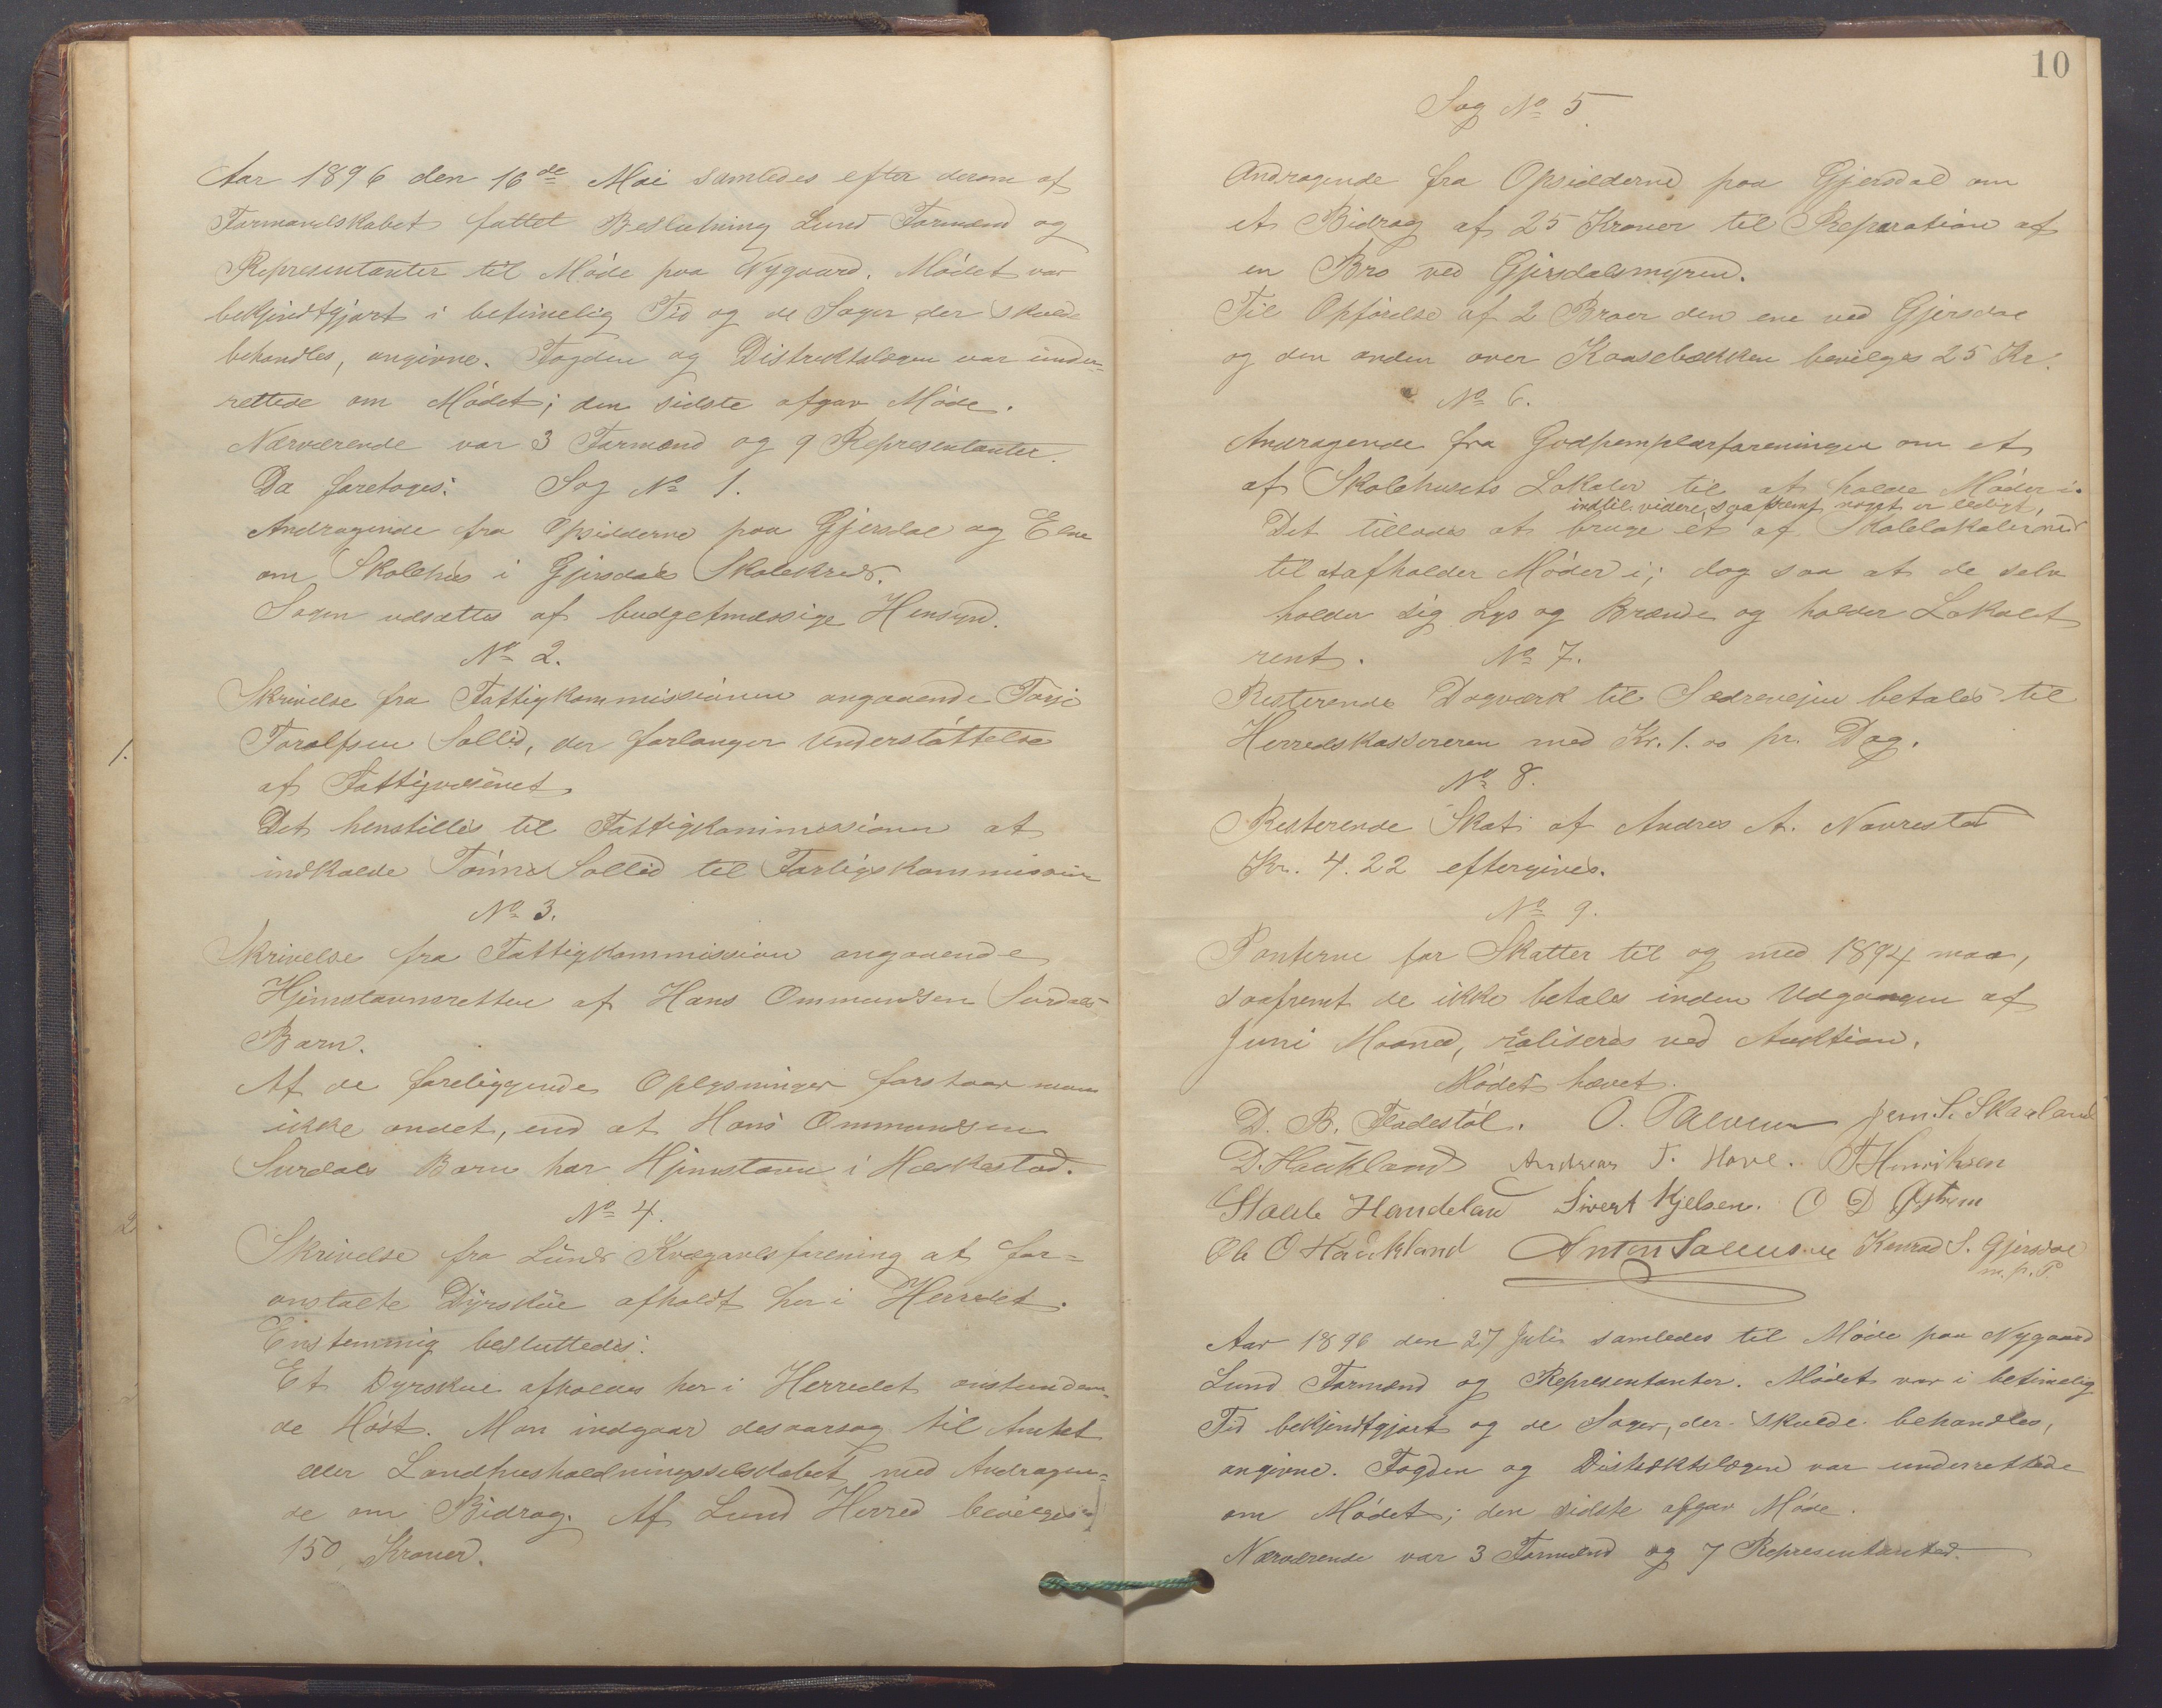 Aar 1896 den 16de Mai samledes efter derom af
Formandskabet fattet Beslutning Lund Formænd og
Repræsentanter til Møde paa Nygaard. Mødet var
bekjendtgjort i betimelig Tid og de Sager der skulde
behandles, angivne. Fogden og Distriktslægen var under-
rettede om Mødet; den sidste afgav Møde.
Nærværende var 3 Formænd og 9 Repræsentanter.
Da foretoges: Sag No 1.
Andragende fra Opsidderne paa Gjersdal og Elve
om Skolehus i Gjersdals Skolekreds.
Sagen udsættes af budgetmæssige Hensyn.
No 2.
Skrivelse fra Fattigkommissionen angaaende Tarje
Toralfsen Sollid, der forlanger Understøttelse
1.
af Fattigvæsenet.
Det henstilles til Fattigkommissionen at
indkalde Sollid til Forligskommission
No 3.
Skrivelse fra Fattigkommission angaaende
Hjemstavnsretten af Hans Ommundsen Surdals
Børn.
Af de foreliggende Oplysninger forstaar man
ikke andet, end at Hans Ommundsen
Surdals Børn har Hjemstavn i Heskestad.
No 4.
2
Skrivelse fra Lunds Kvægavlsforening at for=
anstalte Dyrskue afholdt her i Herredet.
Enstemmig besluttedes:
Et Dyrskue afholdes her i Herredet anstunden-
de Høst. Man indgaar desaarsag til Amtet
eller Landhusholdningsselskabet med Andragen=
de om Bidrag. Af Lund Herred bevilges
150 Kroner.
10
Sag No 5.
Andragende fra Opsidderne paa Gjersdal om
et Bidrag af 25 Kroner til Reparation af
en Bro ved Gjersdalsmyren.
Til Opførelse af 2 Broer den ene ved Gjersdal
og den anden over Kaasebækken bevilges 25 Kr.
No 6.
Andragende fra Godtemplarforeningen om et
af Skolehusets Lokaler til at holde Møder i.
indtil videre, saafremt noget er ledigt,
Det tillades at bruge et af Skolelokalerne
til at afholder Møder i; dog saa at de selv
holder sig Lys og Brænde og holder Lokalet
rent. No 7.
Resterende Dagværk til Sædrevejen betales til
Herredskassereren med Kr. 1.00 pr. Dag.
No 8.
Resterende Skat af Andres A. Navrestad
Kr. 4.22 eftergives.
No 9.
Panterne for Skatter til og med 1894 maa,
saafremt de ikke betales inden Udgangen af
Juni Maaned, realiseres ved Auktion.
Mødet hævet.
D. B. Fladestøl. O. Jens S. Skaaland
D. Haukland Andreas T. Hove. T Henriksen
Staale Handeland Sivert Kjelsen. O D Øystrem
Ole O Haukland Anton Salvesen Konrad S. Gjersdal
m. p. P.
Aar 1896 den 27 Juli samledes til Møde paa Nygaard
Lund Formænd og Repræsentanter. Mødet var i betimelig
Tid bekjendtgjort og de Sager, der skulde behandles,
angivne. Fogden og Distriktslægen var underrettede
om Mødet; den sidste afgav Møde.
Nærværende var 3 Formænd og 7 Repræsentanter.